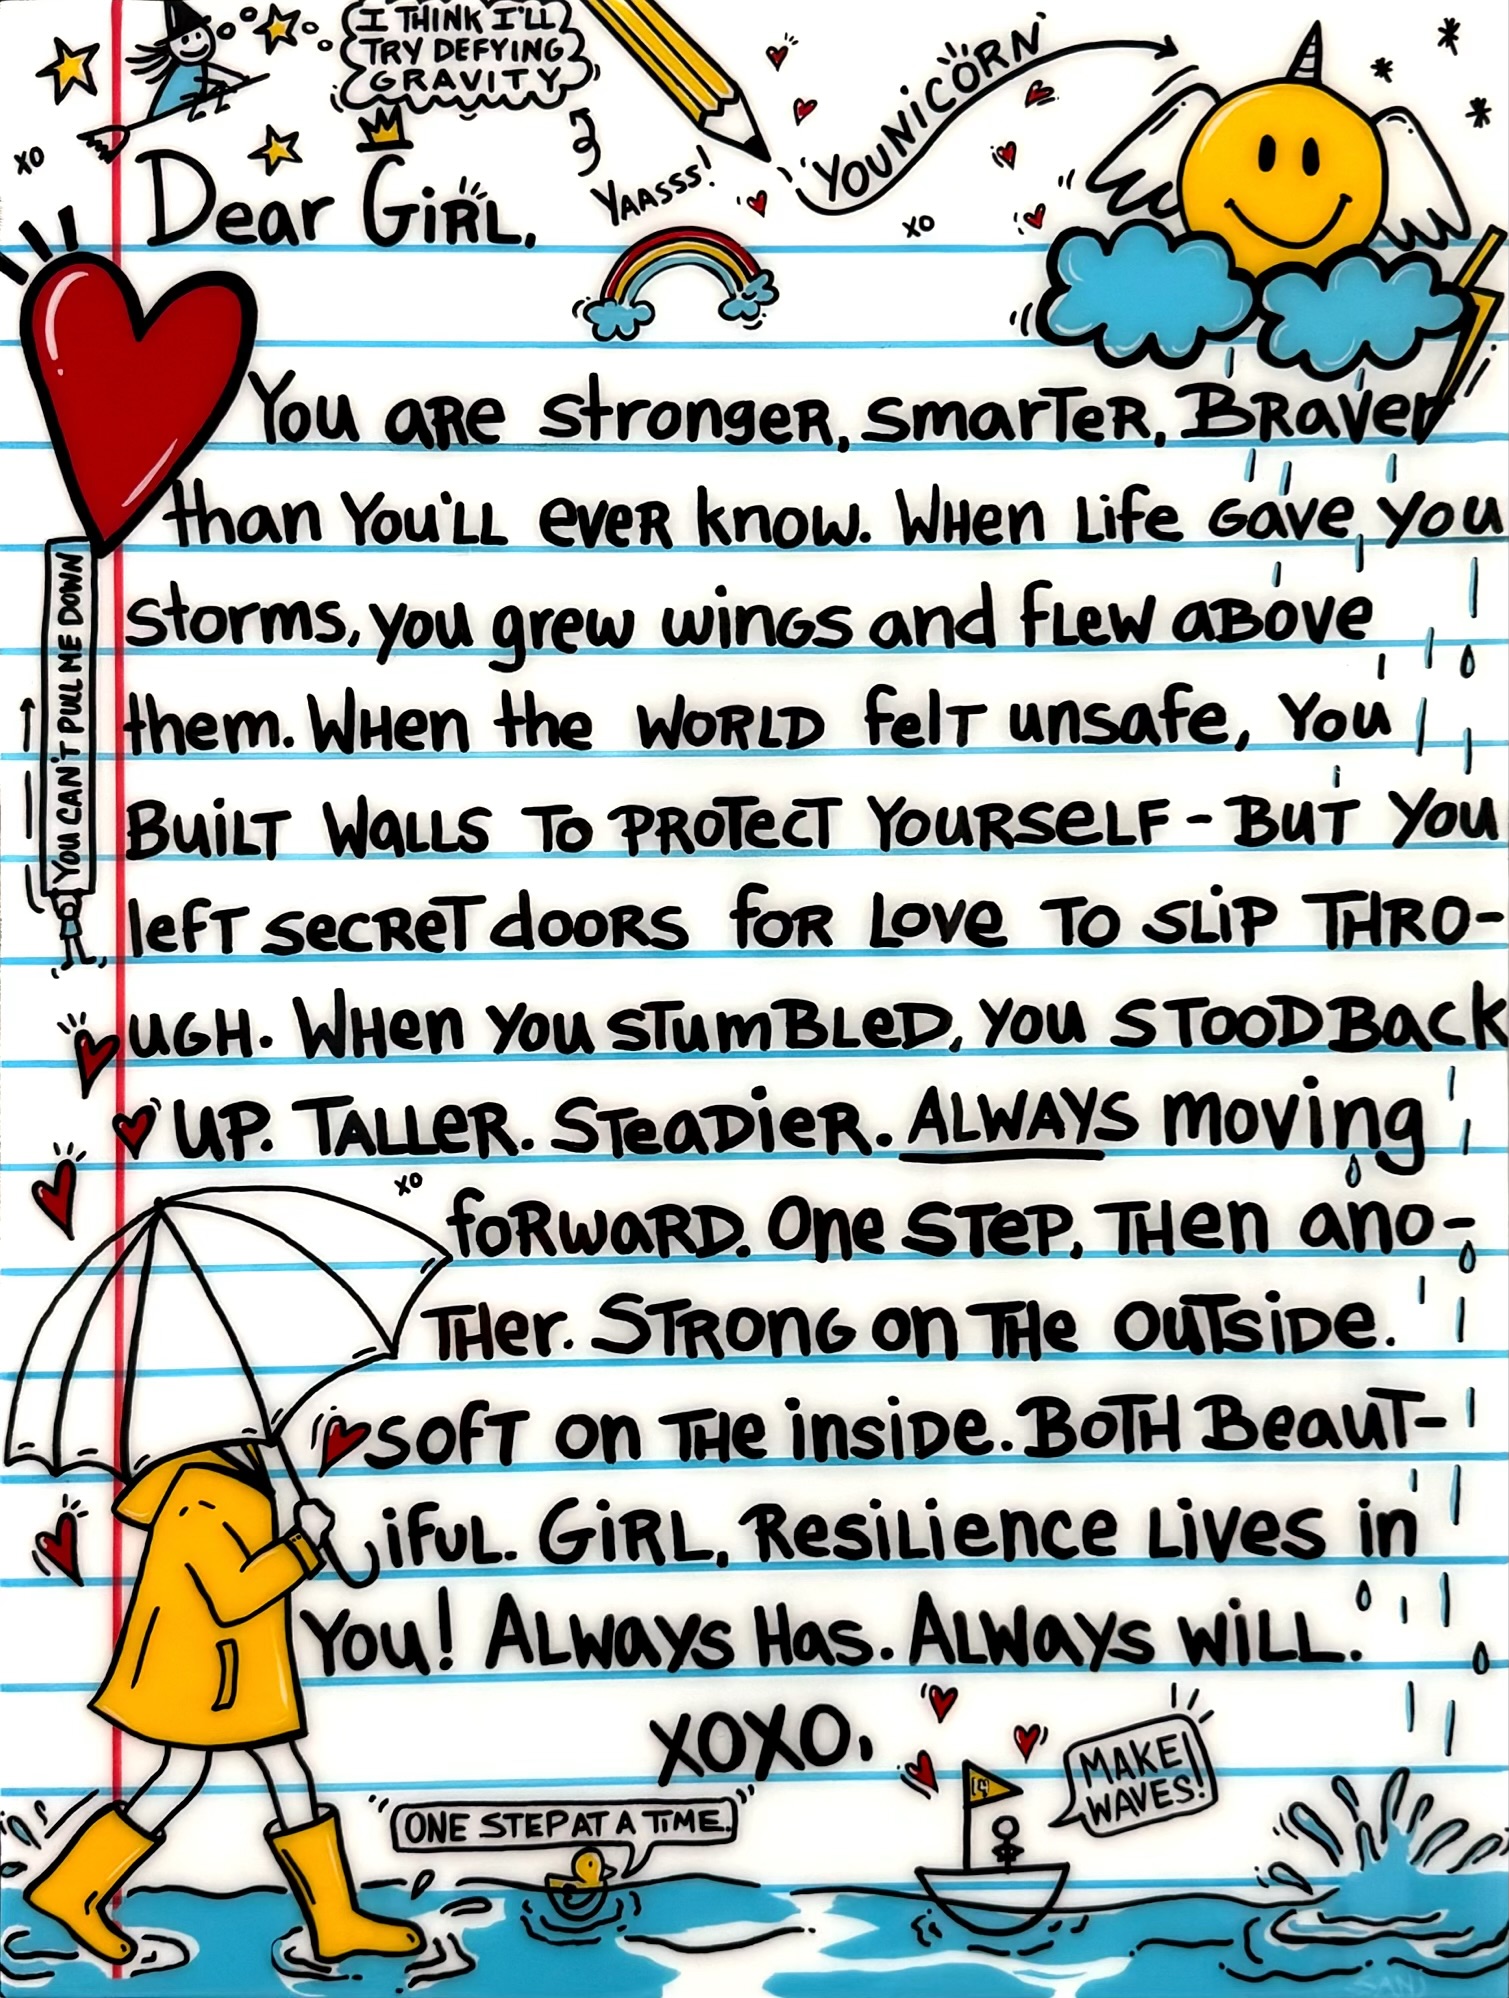 I THINK I'LL
TRY DEFYING
GRAVITY
YOUNiCORN
xo
YAASSS!
Dear GiRL,
xo
You are stronger, smarter, Braver
than You'LL ever know. When Life Gave you
storms, you grew wings and flew above
them. When the WORLD felt unsafe, You
Built Walls To PROTECT YOURSELF - BUT You
left secret doors for Love TO SLiP THRO-
UGH. When You STumBLeD, You STOOD Back
UP. TALLeR. STeaDieR. ALWAYS moving
xo
forward. One STeP, THen ano-
THer. STRONG on THe OUTSiDe.
SOfT on THe inSiDe. BOTH BeauT-
iFUL. GiRL, Resilience Lives in
You! Always Has. Always WiLL.
XOXO,
YOU CAN'T PULL ME DOWN
ONE STEP AT A TiME.
MAKE
WAVES!
SANJ